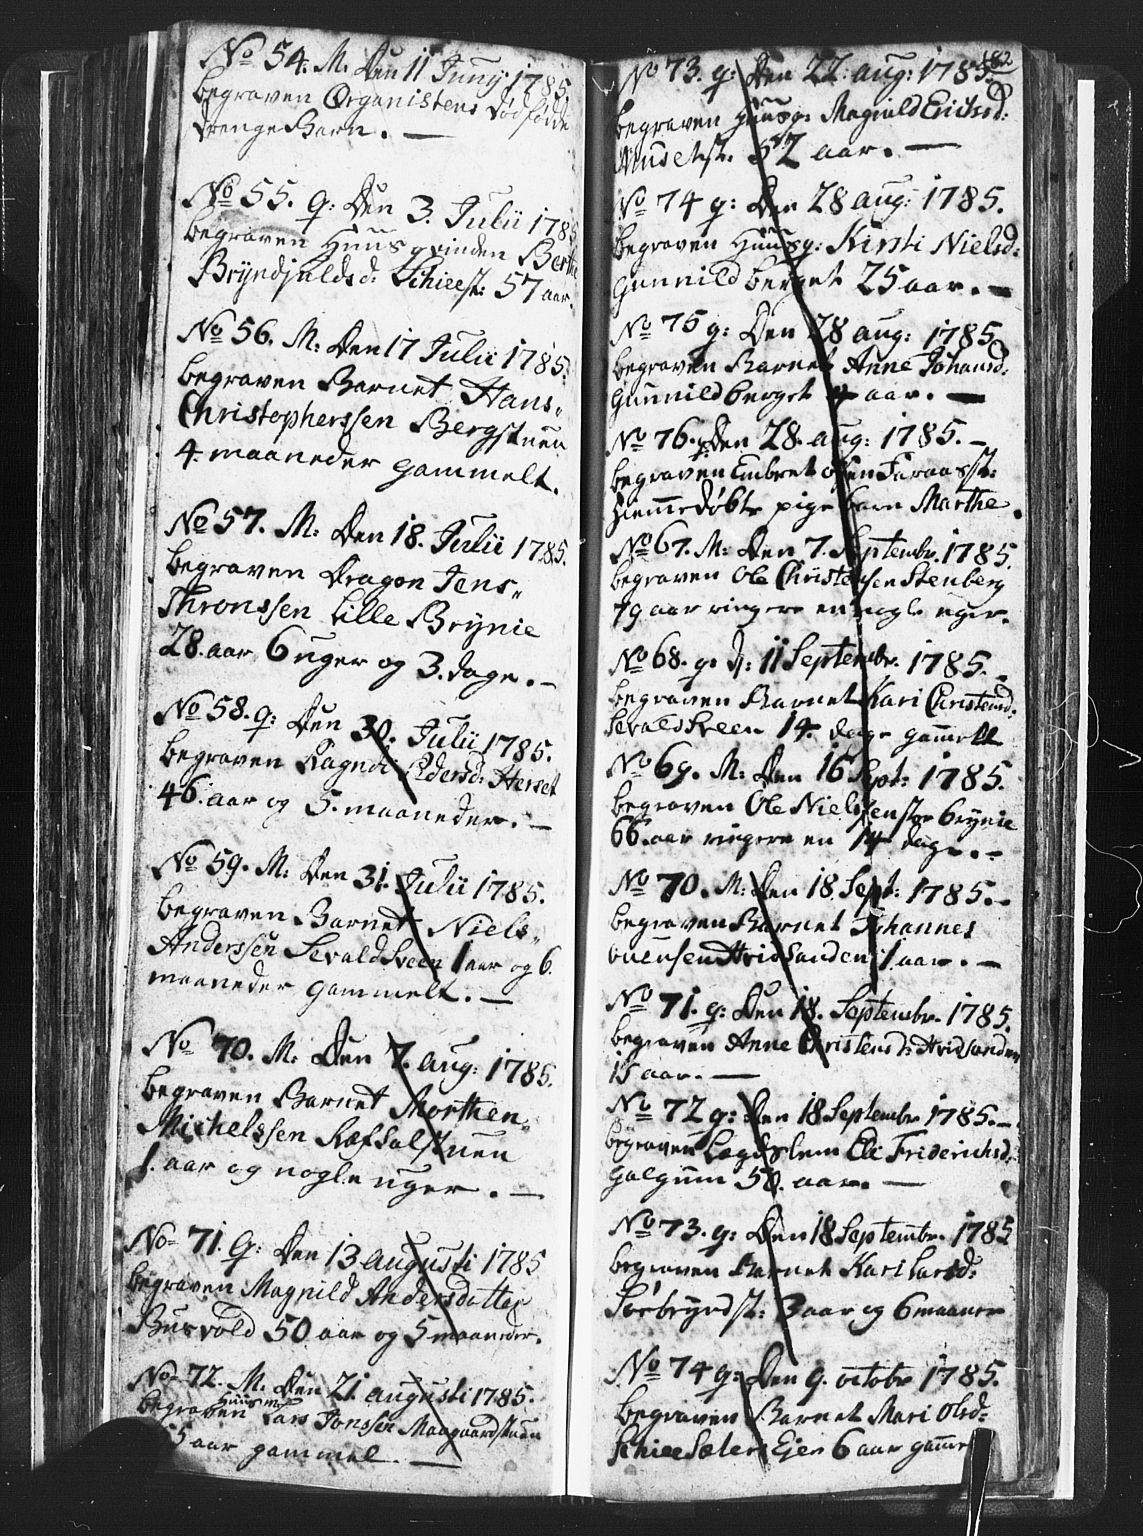 No 54. M. Den 11 Juny 1785.
begraven Organistens dødfødde
drenge Barn. —
No 55. q: Den 3. Julii 1785
begraven Huus qvinden Berthe
Bryndjuldsd: Schieest: 57 aar.
No 56. M: Den 17 Julii 1785.
begraven Barnet Hans
Christopherssen Bergstuen
4. maaneder gammelt.
No 57. M: Den 18. Julii 1785.
begraven Dragon Jens
Thronssen Lille Brynie
28. aar 6 uger og 3. dage. —
No 58. q: Den 30. Julii 1785.
begraven Ragndi Pedersd: Herset
46. aar og 5. maaneder. —
No 59. M: Den 31. Julii 1785.
begraven Barnet Niels
Anderssen Sevaldsveen 1 aar og 6.
maaneder gammelt. —
No 70. M. Den 7. aug: 1785.
begraven Barnet Morthen
Michelssen Ræfsalstuen
1. aar og nogle uger. —
No 71. q: Den 13 augusti 1785
begraven Magnild Andersdatter
Busvold 50 aar og 5 maaneder.
No 72. M. Den 21. augusti 1785.
Huusm:
begraven Lars Jonssen Maagaardstuen
5 aar gammel. —
182
No 73. q: Den 22. aug: 1785.
begraven Huusq: Magnild Erichsd:
52 aar. —
No 74 q: Den 28 aug: 1785.
begraven Huusq: Kirsti Nielsd:
Gunnildberget 25 aar. —
No 75 q: Den 28 aug: 1785.
begraven Barnet Anne Johansd:
Gunnildberget 4 aar. —
No 76. q: Den 28. aug: 1785. —
begraven Embret olsen Faraasst:
Hiemmedøbte pige barn Marthe.
No 67. M: Den 7. Septembr. 1785.
begraven Ole Christensen Stenberg
79 aar ringere en nogle uger.
No 68. q. d: 11 Septembr. 1785. —
begraven Barnet Kari Christensd:
Sevaldsveen 14. dage gammelt
No 69. M: Den 16 Sept: 1785.
begraven Ole Nielssen stor Brynie
66. aar ringere en 14 dage. —
No 70. M: Den 18 Sept: 1785. —
begraven Barnet Johannes
Hvidsanden 1 aar. —
No 71. q: Den 18. Septembr. 1785.
begraven Anne Christensd: Hvidsanden
15 aar. —
No 72 q: Den 18 Septembr 1785. —
begraven Lægdslem Eli Friderichsd:
Galguum 50. aar. —
No 73. q: Den 18 Septembr. 1785
begraven Barnet Kari Larsd:
Sørbryndst: 3 aar og 6 maaner
No 74 q: Den 9. octobr 1785.
begraven Barnet Mari Olsd:
Schiee Sæters Ejer 6 aar